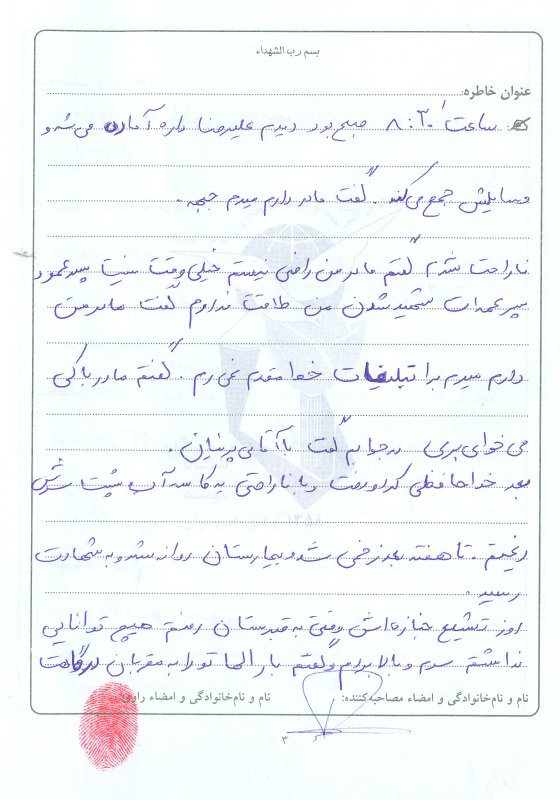 بسم رب الشهداء
عنوان خاطره:
ساعت ۸:۳۰ صبح بود دیدم علیرضا داره آماده می شه و
وسایلش جمع می کنه. گفت مادر دارم میرم جبهه.
ناراحت شدم گفتم مادر من راضی نیستم خیلی وقت نیست پسر عمو و
پسر عمه ات شهید شدن من طاقت ندارم گفت مادر من
دارم میرم برا تبلیغات خط مقدم نمی رم. گفتم مادر با کی
می خوای بری در جوابم گفت با آقای پرنیان.
بعد خداحافظی کرد و رفت و با ناراحتی یه کاسه آب پشت سرش
ریختیم. تا هفته بعد زخمی شد و بیمارستان روانه شد و به شهادت
رسید.
روز تشییع جنازه اش وقتی به قبرستان رفتم هیچ توانایی
نداشتم سرم و بالا بردم و گفتم بار الها تو را به مقربان درگاهت
نام و نام‌خانوادگی و امضاء مصاحبه‌کننده:
نام و نام‌خانوادگی و امضاء راوی:
۳